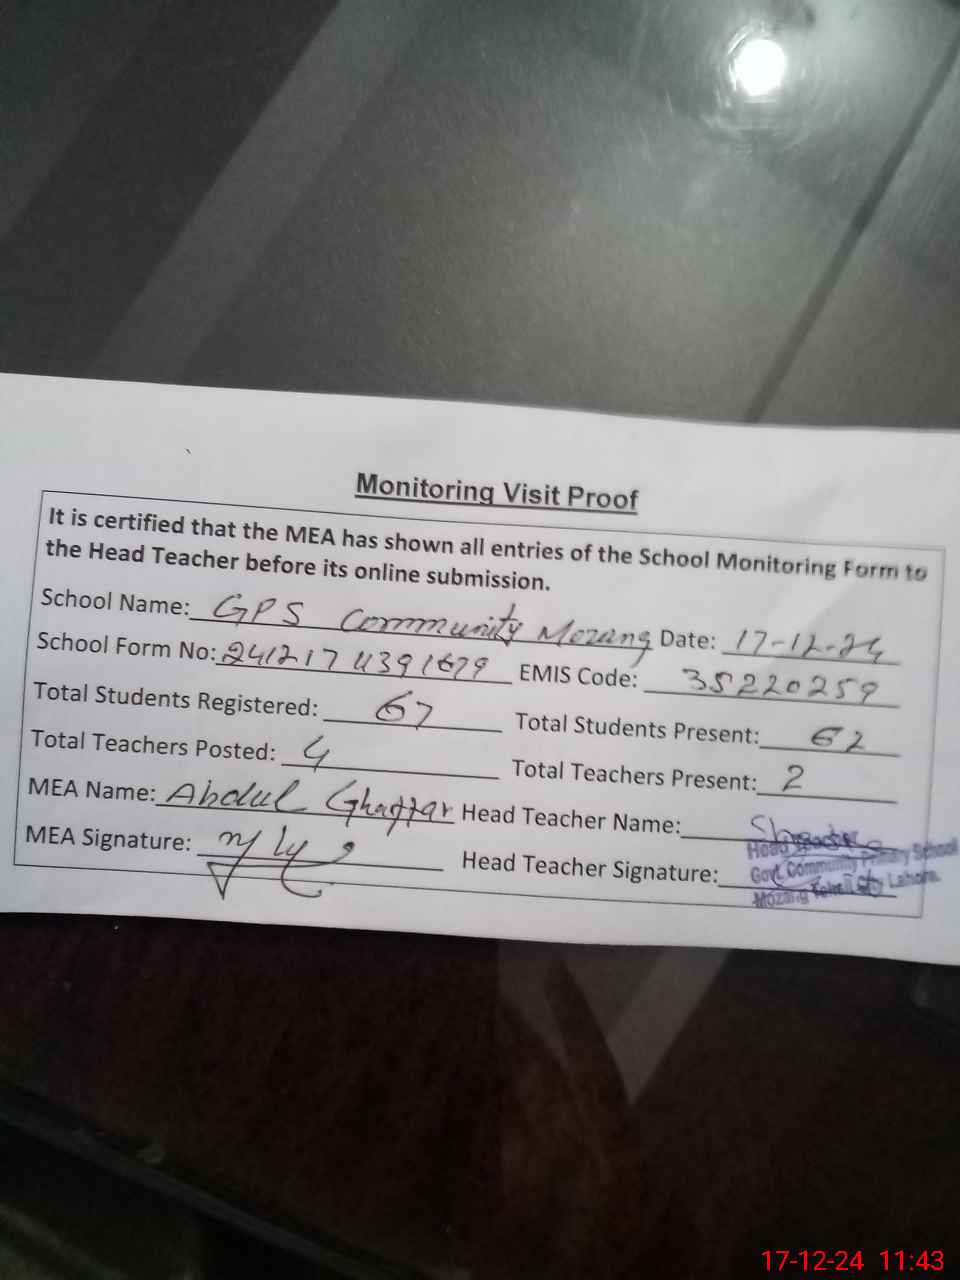 Monitoring Visit Proof
It is certified that the MEA has shown all entries of the School Monitoring Form to
the Head Teacher before its online submission.
School Name: GPS Community Mozang Date: 17-12-24
School Form No: 241217 11391679 EMIS Code: 35220259
Total Students Registered: 67 Total Students Present: 62
Total Teachers Posted: 4 Total Teachers Present: 2
MEA Name: Abdul Ghaffar Head Teacher Name:
MEA Signature: Head Teacher Signature:
Head Teacher
Govt. Community Primary School
Mozang Lahore.
17-12-24 11:43